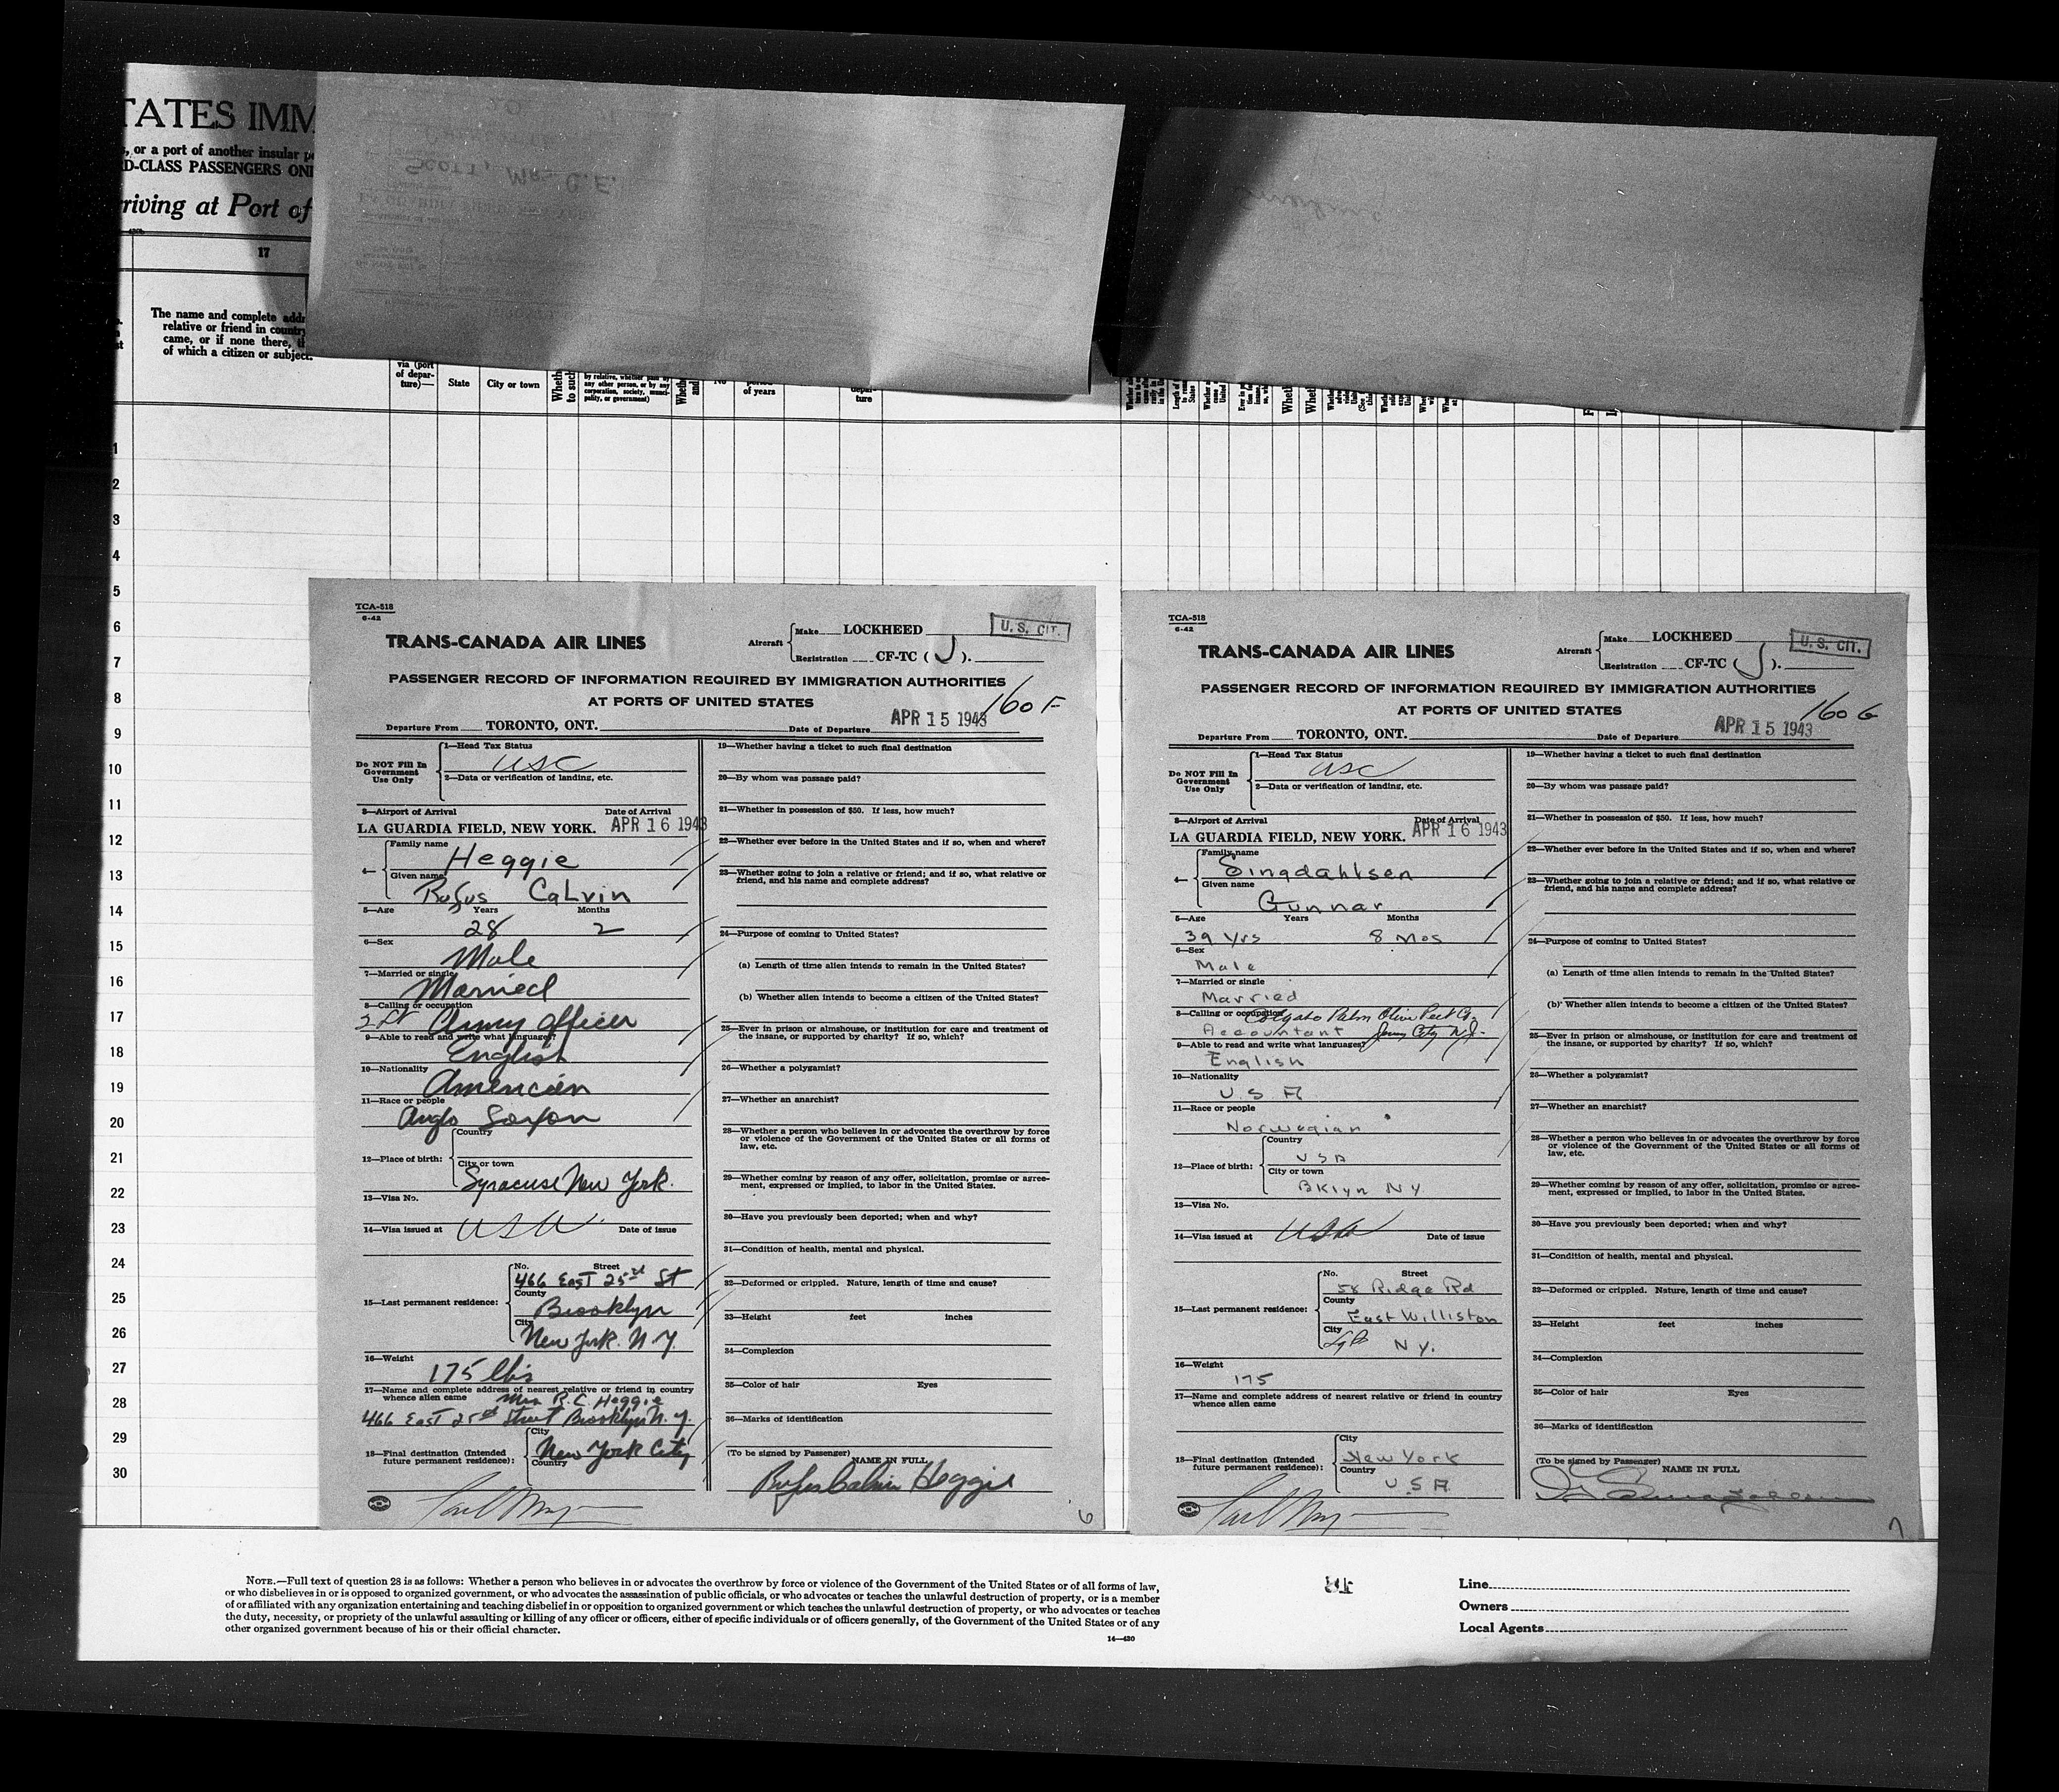 TATES IMM
, or a port of another insular
RD-CLASS PASSENGERS ON
rriving at Port of
17
The name and complete addr
relative or friend in country
came, or if none there, th
of which a citizen or subject.
via (port
of depar-
ture)—
State
City or town
by relative, whether paid by
any other person, or by any
corporation, society, munici-
pality, or government)
No
period
of years
depar-
ture
SCOTT, MRS. C.E.
1
2
3
4
5
6
7
8
9
10
11
12
13
14
15
16
17
18
19
20
21
22
23
24
25
26
27
28
29
30
TCA-518
6-42
TRANS-CANADA AIR LINES
Aircraft
Make LOCKHEED
Registration CF-TC (J).
U. S. CIT.
PASSENGER RECORD OF INFORMATION REQUIRED BY IMMIGRATION AUTHORITIES
AT PORTS OF UNITED STATES
160 F
Departure From TORONTO, ONT. Date of Departure APR 15 1943
Do NOT Fill In
Government
Use Only
1—Head Tax Status
USC
2—Data or verification of landing, etc.
3—Airport of Arrival Date of Arrival
LA GUARDIA FIELD, NEW YORK. APR 16 1943
4—
Family name
Heggie
Given name
Rufus Calvin
5—Age Years Months
28 2
6—Sex
Male
7—Married or single
Married
8—Calling or occupation
2 Lt Army Officer
9—Able to read and write what languages?
English
10—Nationality
American
11—Race or people
Anglo Saxon
12—Place of birth:
Country
City or town
Syracuse New York.
13—Visa No.
14—Visa issued at USA Date of issue
15—Last permanent residence:
No. Street
466 East 25th St
County
Brooklyn
City
New York. N.Y.
16—Weight
175 lbs
17—Name and complete address of nearest relative or friend in country
whence alien came Mrs R.C. Heggie
466 East 25th Street Brooklyn N.Y.
18—Final destination (Intended
future permanent residence):
City
New York City
Country
19—Whether having a ticket to such final destination
20—By whom was passage paid?
21—Whether in possession of $50. If less, how much?
22—Whether ever before in the United States and if so, when and where?
23—Whether going to join a relative or friend; and if so, what relative or
friend, and his name and complete address?
24—Purpose of coming to United States?
(a) Length of time alien intends to remain in the United States?
(b) Whether alien intends to become a citizen of the United States?
25—Ever in prison or almshouse, or institution for care and treatment of
the insane, or supported by charity? If so, which?
26—Whether a polygamist?
27—Whether an anarchist?
28—Whether a person who believes in or advocates the overthrow by force
or violence of the Government of the United States or all forms of
law, etc.
29—Whether coming by reason of any offer, solicitation, promise or agree-
ment, expressed or implied, to labor in the United States.
30—Have you previously been deported; when and why?
31—Condition of health, mental and physical.
32—Deformed or crippled. Nature, length of time and cause?
33—Height feet inches
34—Complexion
35—Color of hair Eyes
36—Marks of identification
(To be signed by Passenger)
NAME IN FULL
Rufus Calvin Heggie
6
TCA-518
6-42
TRANS-CANADA AIR LINES
Aircraft
Make LOCKHEED
Registration CF-TC (J).
U. S. CIT.
PASSENGER RECORD OF INFORMATION REQUIRED BY IMMIGRATION AUTHORITIES
AT PORTS OF UNITED STATES
160 G
Departure From TORONTO, ONT. Date of Departure APR 15 1943
Do NOT Fill In
Government
Use Only
1—Head Tax Status
USC
2—Data or verification of landing, etc.
3—Airport of Arrival Date of Arrival
LA GUARDIA FIELD, NEW YORK. APR 16 1943
4—
Family name
Singdahlsen
Given name
Gunnar
5—Age Years Months
39 Yrs 8 Mos
6—Sex
Male
7—Married or single
Married
8—Calling or occupation Colgate Palm Olive Peet Co.
Accountant Jersey City N.J.
9—Able to read and write what languages?
English
10—Nationality
U. S. A
11—Race or people
Norwegian
12—Place of birth:
Country
USA
City or town
BKlyn NY.
13—Visa No.
14—Visa issued at USA Date of issue
15—Last permanent residence:
No. Street
58 Ridge Rd
County
East Williston
City
N Y.
16—Weight
175
17—Name and complete address of nearest relative or friend in country
whence alien came
18—Final destination (Intended
future permanent residence):
City
New York
Country
U. S. A.
19—Whether having a ticket to such final destination
20—By whom was passage paid?
21—Whether in possession of $50. If less, how much?
22—Whether ever before in the United States and if so, when and where?
23—Whether going to join a relative or friend; and if so, what relative or
friend, and his name and complete address?
24—Purpose of coming to United States?
(a) Length of time alien intends to remain in the United States?
(b) Whether alien intends to become a citizen of the United States?
25—Ever in prison or almshouse, or institution for care and treatment of
the insane, or supported by charity? If so, which?
26—Whether a polygamist?
27—Whether an anarchist?
28—Whether a person who believes in or advocates the overthrow by force
or violence of the Government of the United States or all forms of
law, etc.
29—Whether coming by reason of any offer, solicitation, promise or agree-
ment, expressed or implied, to labor in the United States.
30—Have you previously been deported; when and why?
31—Condition of health, mental and physical.
32—Deformed or crippled. Nature, length of time and cause?
33—Height feet inches
34—Complexion
35—Color of hair Eyes
36—Marks of identification
(To be signed by Passenger)
NAME IN FULL
7
NOTE.—Full text of question 28 is as follows: Whether a person who believes in or advocates the overthrow by force or violence of the Government of the United States or of all forms of law,
or who disbelieves in or is opposed to organized government, or who advocates the assassination of public officials, or who advocates or teaches the unlawful destruction of property, or is a member
of or affiliated with any organization entertaining and teaching disbelief in or opposition to organized government or which teaches the unlawful destruction of property, or who advocates or teaches
the duty, necessity, or propriety of the unlawful assaulting or killing of any officer or officers, either of specific individuals or of officers generally, of the Government of the United States or of any
other organized government because of his or their official character.
14—430
Line
Owners
Local Agents